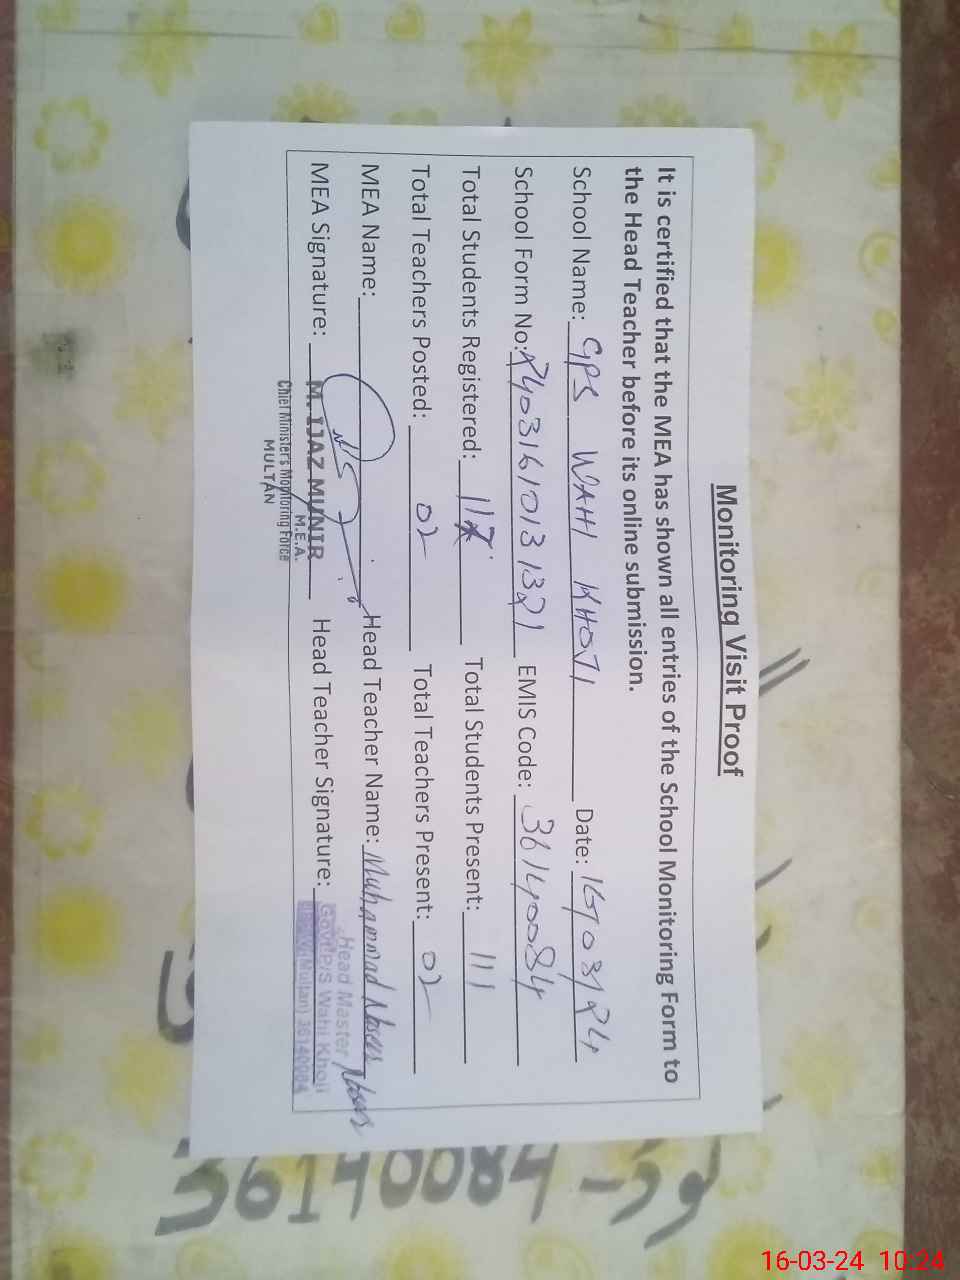 Monitoring Visit Proof
It is certified that the MEA has shown all entries of the School Monitoring Form to
the Head Teacher before its online submission.
School Name: GPS WAHI KHOJI Date: 16/03/24
School Form No: R403161013132) EMIS Code: 36140084
Total Students Registered: 117 Total Students Present: 111
Total Teachers Posted: 02 Total Teachers Present: 02
MEA Name: Head Teacher Name: Muhammad
MEA Signature: Head Teacher Signature:
M. IJAZ MUNIR
M.E.A.
Chief Minister's Monitoring Force
MULTAN
Head Master
Govt P/S Wahi Khoji
(Multan) 36140084
36140084
16-03-24 10:24